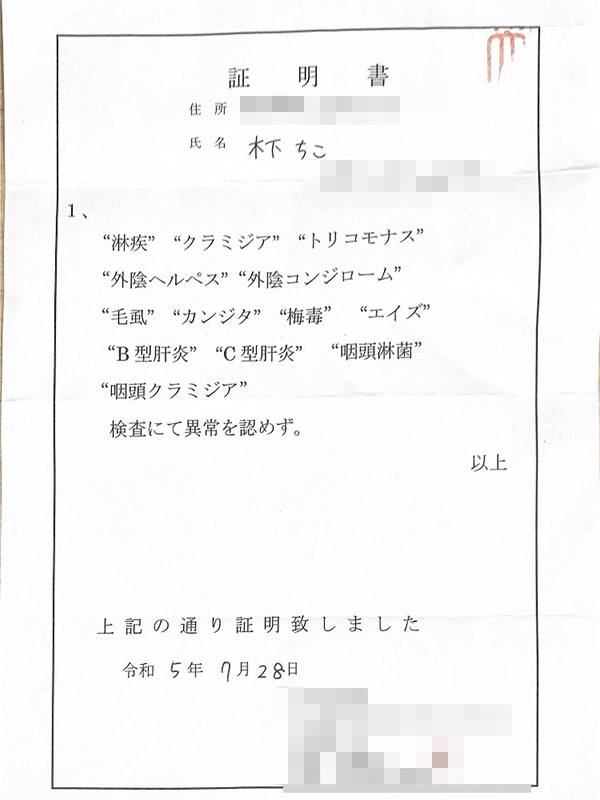 証明書
住所
氏名 木下 ちこ
1、
“淋疾” “クラミジア” “トリコモナス”
“外陰ヘルペス” “外陰コンジローム”
“毛虱” “カンジタ” “梅毒” “エイズ”
“B型肝炎” “C型肝炎” “咽頭淋菌”
“咽頭クラミジア”
検査にて異常を認めず。
以上
上記の通り証明致しました
令和 5年 7月 28日